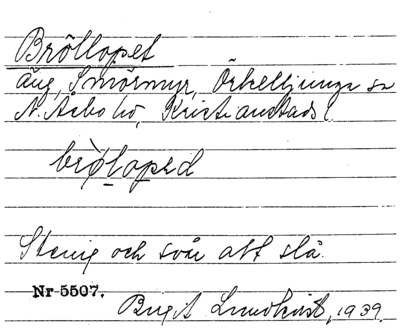 Bröllopet
äng, Smörmyr, Örkelljunga sn
N. Åsbo hd, Kristianstads l.
brø̀loped
Stenig och svår att slå.
Nr 5507.
Birgit Lundkvist, 1939.